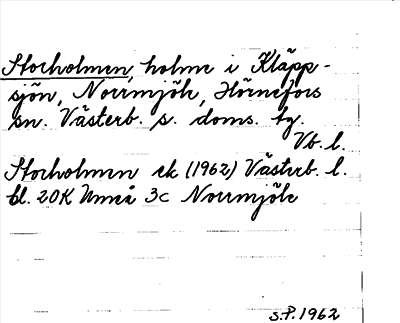 Storholmen, holme i Kläpp-
sjön, Norrmjöle, Hörnefors
sn. Västerb. s. doms. bg.
Vb. l.
Storholmen ek (1962) Västerb. l.
bl. 20K Umeå 3c Norrmjöle
S.P. 1962